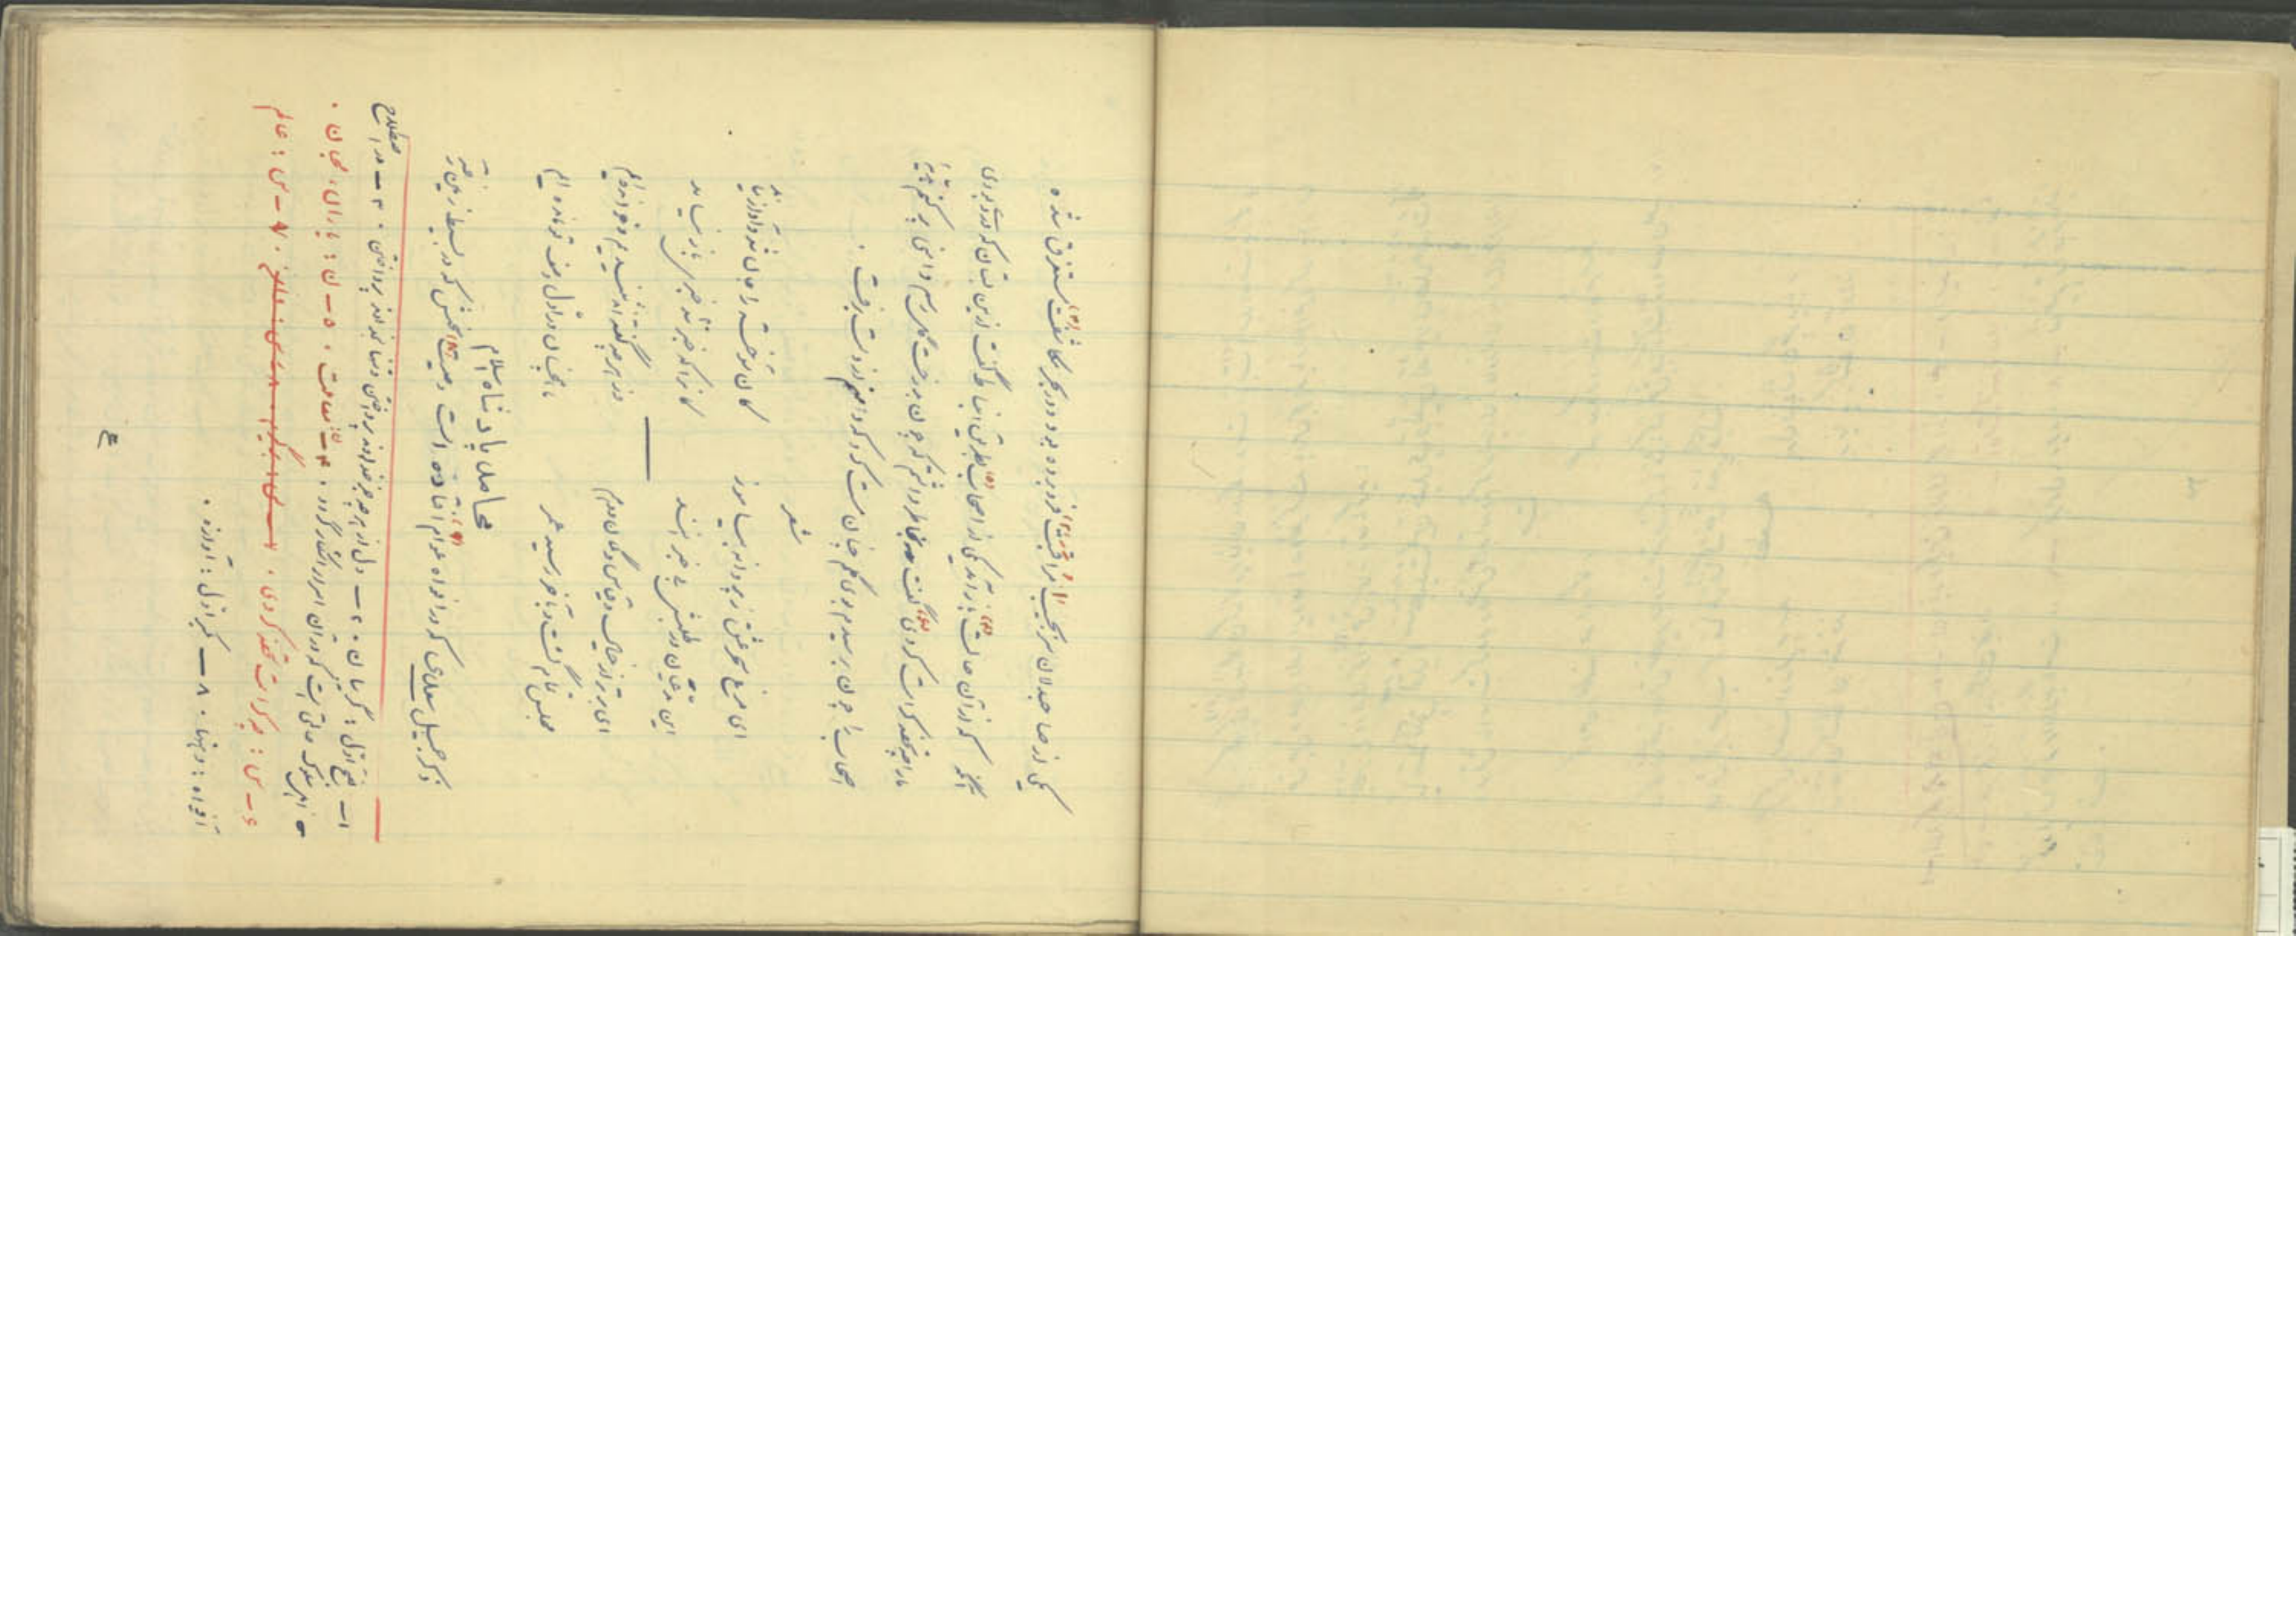 یکی از صاحبدلان سر بجیب(۱) مراقبت(۲) فرو برده بود و در بحر مکاشفت(۳) مستغرق شده
آنگه که از آن حالت(۴) باز آمد یکی از اصحاب(۵) بطریق انبساط گفت ازین بستان که تو بودی
ما را چه تحفه کرامت کردی(۶) گفت بخاطر داشتم که چون بدرخت گل رسم دامنی پر کنم هدیهٔ
اصحاب را چون برسیدم بوی گلم چنان مست کرد که دامنم از دست برفت .
شعر
ای مرغ سحر عشق ز پروانه بیاموز
کان سوخته را جان شد و آواز نیامد
این مدعیان در طلبش بی خبرانند
کانرا که خبر شد خبری باز نیامد
ای برتر از خیال و قیاس و گمان و وهم
وز هر چه گفته اند و شنیدیم و خوانده ایم
مجلس تمام گشت و بآخر رسید عمر
ما همچنان در اول وصف تو مانده ایم
محامل پادشاه اسلام
ذکر جمیل سعدی که در افواه عوام(۷) افتاده است و صیت(۸) سخنش که در بسیط زمین
۱ – بفتح اول : گریبان . ۲ – دل از هر چه جز خدا پرداختن و تنها بخدا پرداختن . ۳ – در اصطلاح
اهل سلوک حالتی است که در آن اسرار آشکار گردد . ۴ – ن : معاملت . ۵ – ن : یاران ، محبان .
۶ – س : چه کرامت تحفه کردی . ۷ – س : عالم
افواه : دهنها . ۸ – بکسر اول : آوازه .
۴